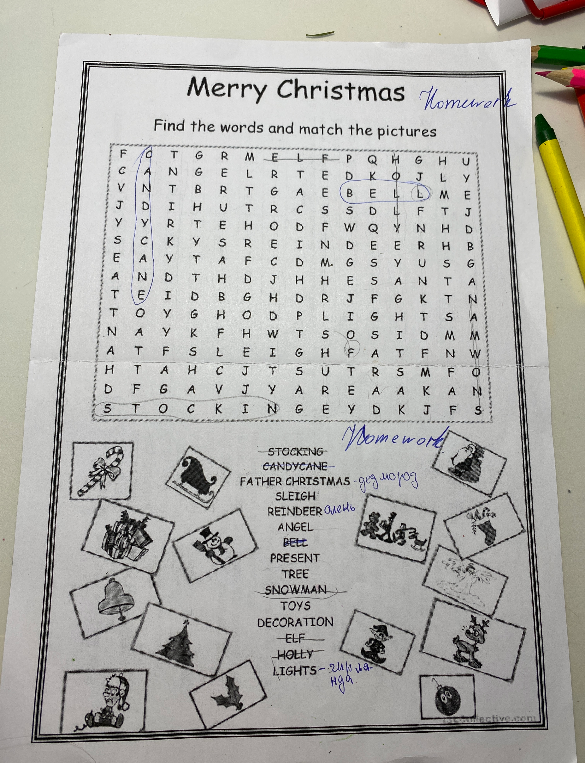 Merry Christmas
Homework
Find the words and match the pictures
F C T G R M E L F P Q H G H U
C A N G E L R T E D K O J L Y
V N T B R T G A E B E L L M E
J D I H U T R C S S D L F T J
Y Y R T E H O D F W Q Y N H D
S C K Y S R E I N D E E R H B
E A Y T A F C D M G S Y U S G
A N D T H D J H H E S A N T A
T E I D B G H D R J F G K T N
T O Y G H O D P L I G H T S A
N A Y K F H W T S O S I D M M
A T F S L E I G H F A T F N W
H T A H C J T S U T R S M F O
D F G A V J Y A R E A A K A N
S T O C K I N G E Y D K J F S
Homework
STOCKING
CANDYCANE
FATHER CHRISTMAS - дед мороз
SLEIGH
REINDEER олень
ANGEL
BELL
PRESENT
TREE
SNOWMAN
TOYS
DECORATION
ELF
HOLLY
LIGHTS - гирля-
нда